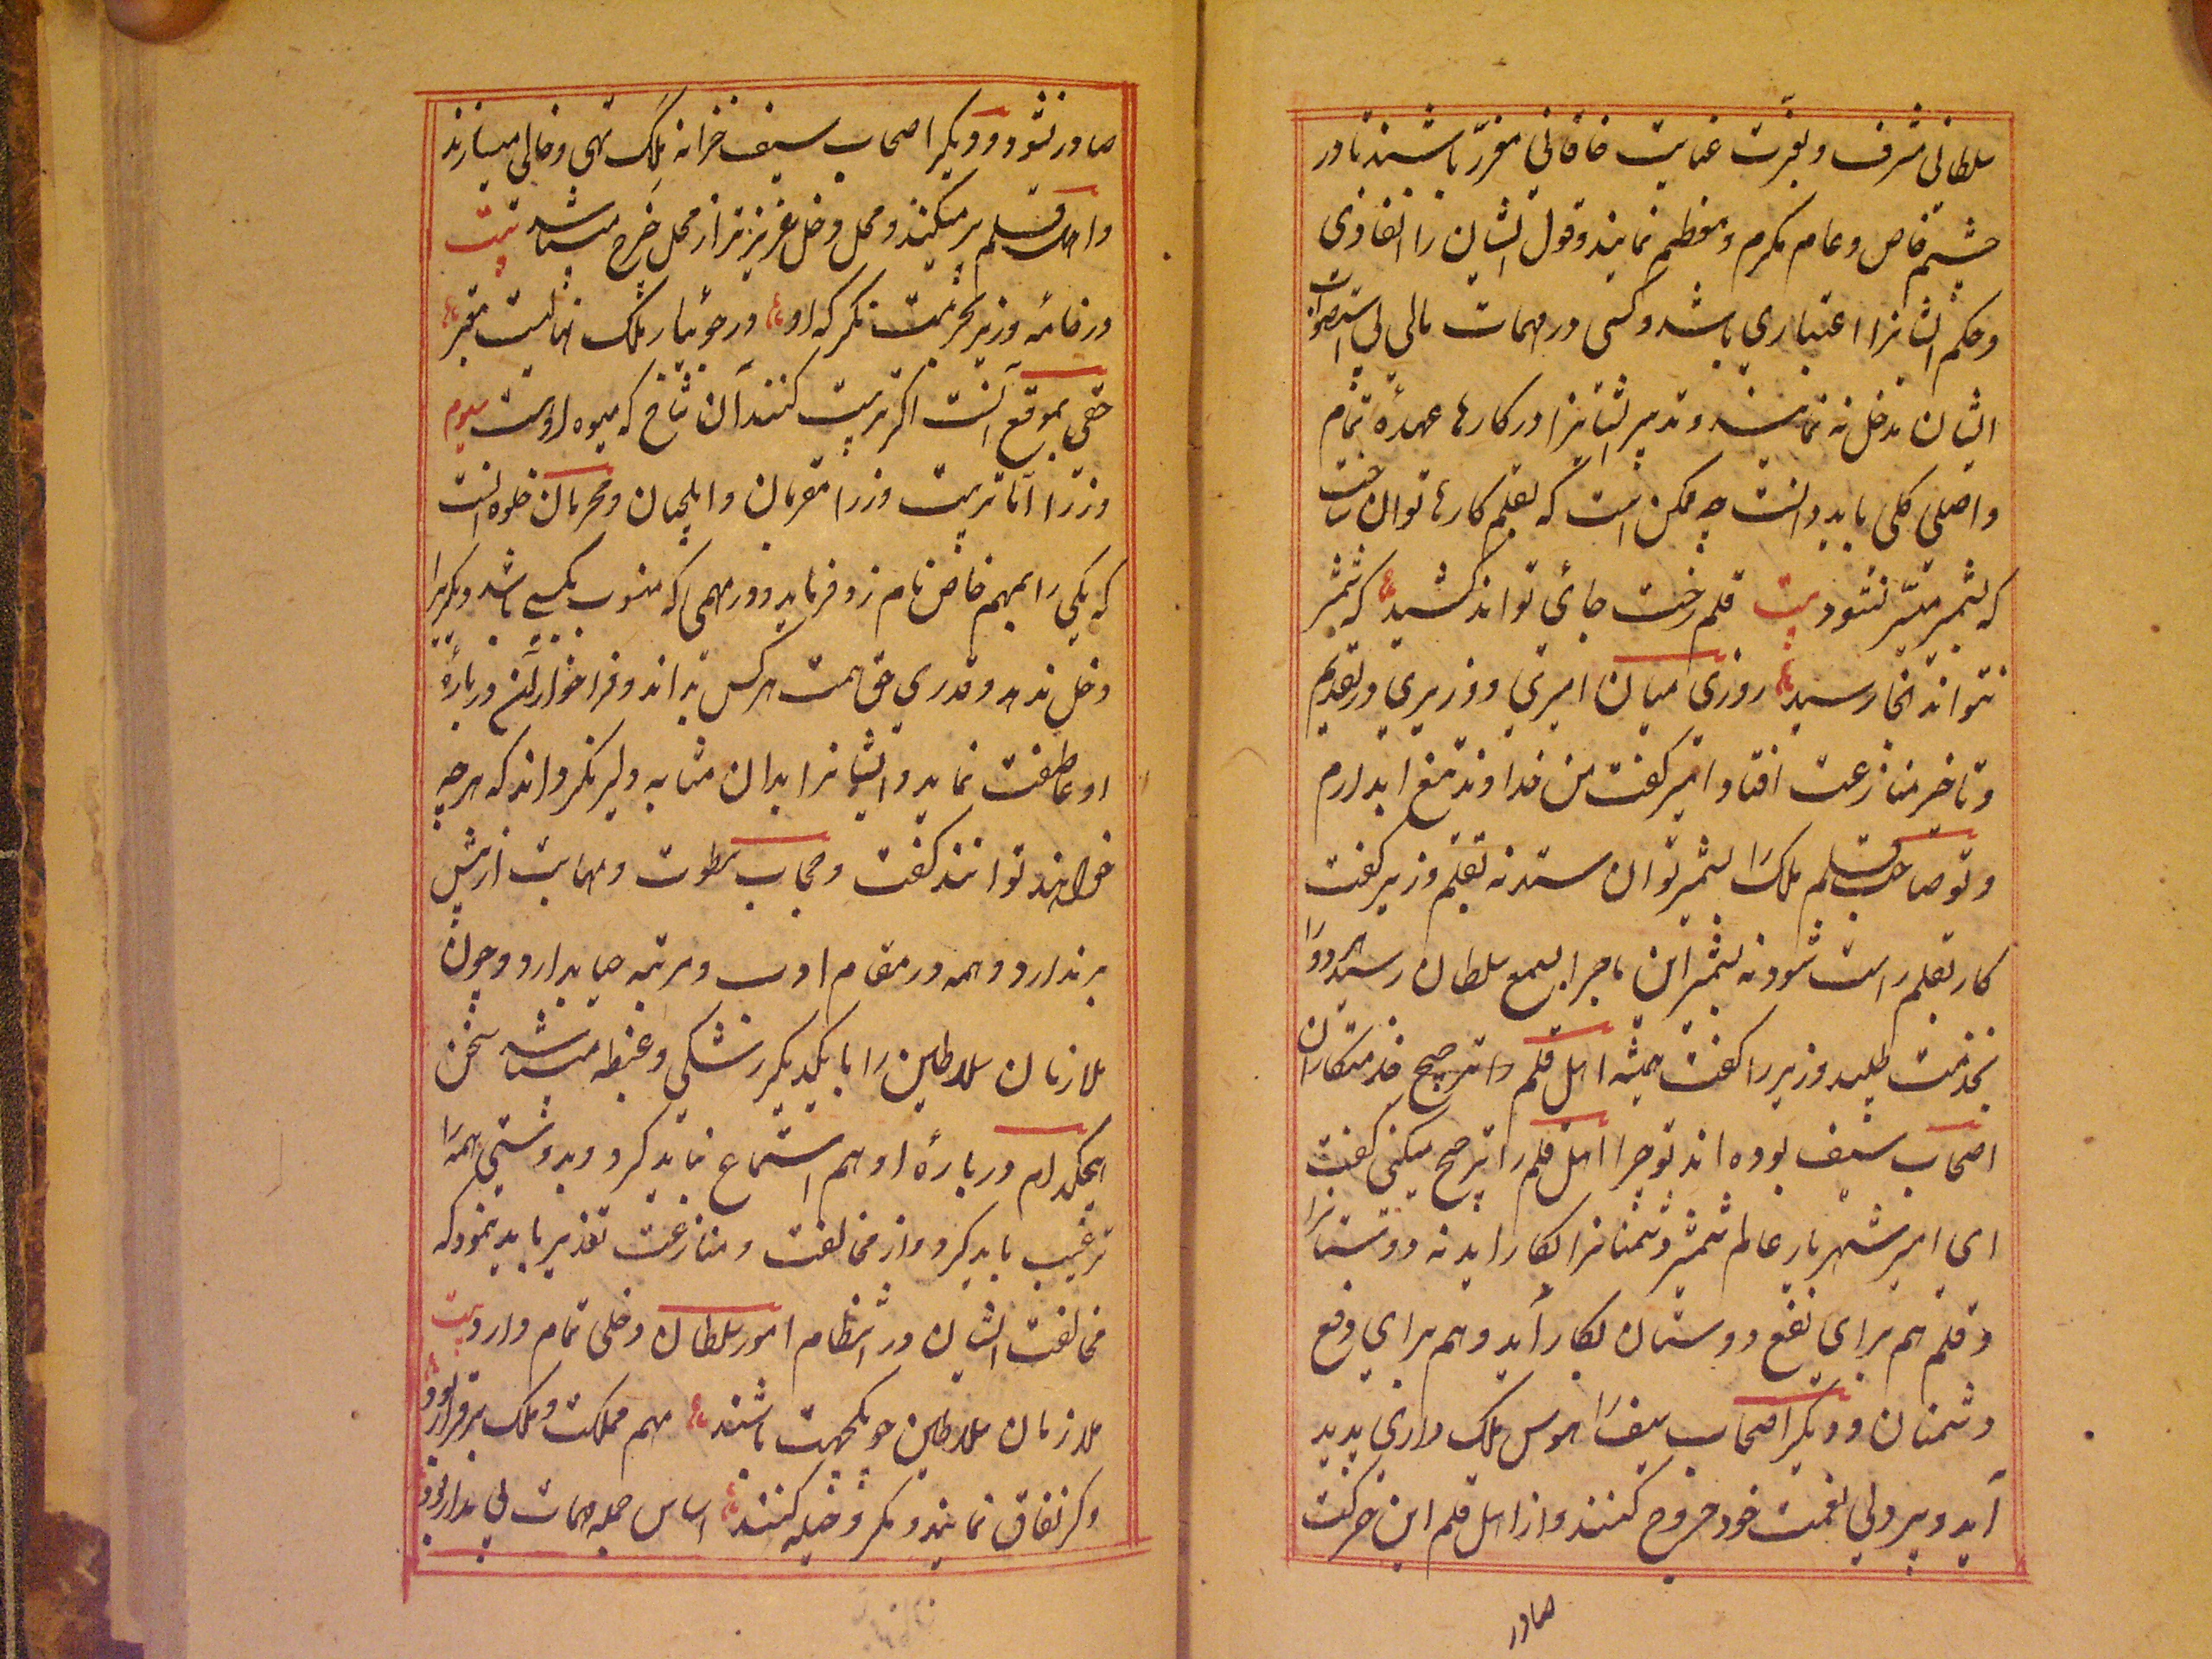 سلطانی مشرف و بعزت عنایت خاقانی معزز باشند تا در
چشم خاص و عام مکرم و معظم نمایند و قول ایشان را نفاذی
و حکم ایشانرا اعتباری باشد و کسی در مهمات مالی بی استصواب
ایشان مدخل نه نماید و تدبیر ایشانرا در کارها عهدهٔ تمام
و اصلی کلی باید دانست چه ممکن است که بقلم کارها توان ساخت
که بشمشیر میسر نشود بیت قلم رخت جائی تواند کشید که شمشیر
نتواند آنجا رسید روزی میان امیری و وزیری در تقدیم
و تاخیر منازعت افتاد امیر گفت من خداوند تیغ ابدارم
و تو صاحب قلم ملک را بشمشیر توان ستد نه بقلم وزیر گفت
کار بقلم راست شود نه بشمشیر این ماجرا بسمع سلطان رسید هر دو را
بخدمت طلبید وزیر را گفت همیشه اهل قلم را ترجیح خدمتکاران
اصحاب سیف بوده اند تو چرا اهل قلم را ترجیح میکنی گفت
ای امیر شهریار عالم شمشیر دشمنانرا بکار اید نه دوستانرا
و قلم هم برای نفع دوستان بکار آید و هم برای دفع
دشمنان و دیگر اصحاب سیف را هوس ملک داری پدید
آید و بر ولی نعمت خود خروج کنند و از اهل قلم این حرکت
صادر
صادر نشود و دیگر اصحاب سیف خزانه ملک تهی و خالی میسازند
و اهل قلم پر میکنند و محل دخل عزیزتر از محل خرج میباشد بیت
در خامه وزیر بحرمت نگر که او در جویبار ملک نهالیست معتبر
حقی بموقع است اگر تربیت کنند آن شاخ که میوه اوست سیوم
وزرا اما تربیت وزرا مقربان و ایلچیان و محرمان خلوه است
که یکی را بمهم خاص نام زد فرماید و در مهمی که منسوب بکسی باشد دیگریرا
دخل ندهد و قدری حق همت هر کس بداند و فراخور آن دربارهٔ
او عاطفت نماید و ایشانرا بدان مثابه دلیر نگرداند که هر چه
خواهند توانند گفت و حجاب سطوت و مهابت از پیش
بر ندارد و همه در مقام ادب و مرتبه حیا بدارد و چون
ملازمان سلاطین را با یکدیگر رشکی و غبطه میباشد سخن
هیچکدام دربارهٔ او هم استماع نباید کرد و بدوستی همه را
ترغیب باید کرد و از مخالفت و منازعت تحذیر باید نمود که
مخالفت ایشان در انتظام امور سلطان دخلی تمام دارد بیت
ملازمان سلاطین چو یکجهت باشند مهم مملکت و ملک برقرار بود
وگر نفاق نمایند و مکر و حیله کنند اساس جمله مهمات بی مدار بود